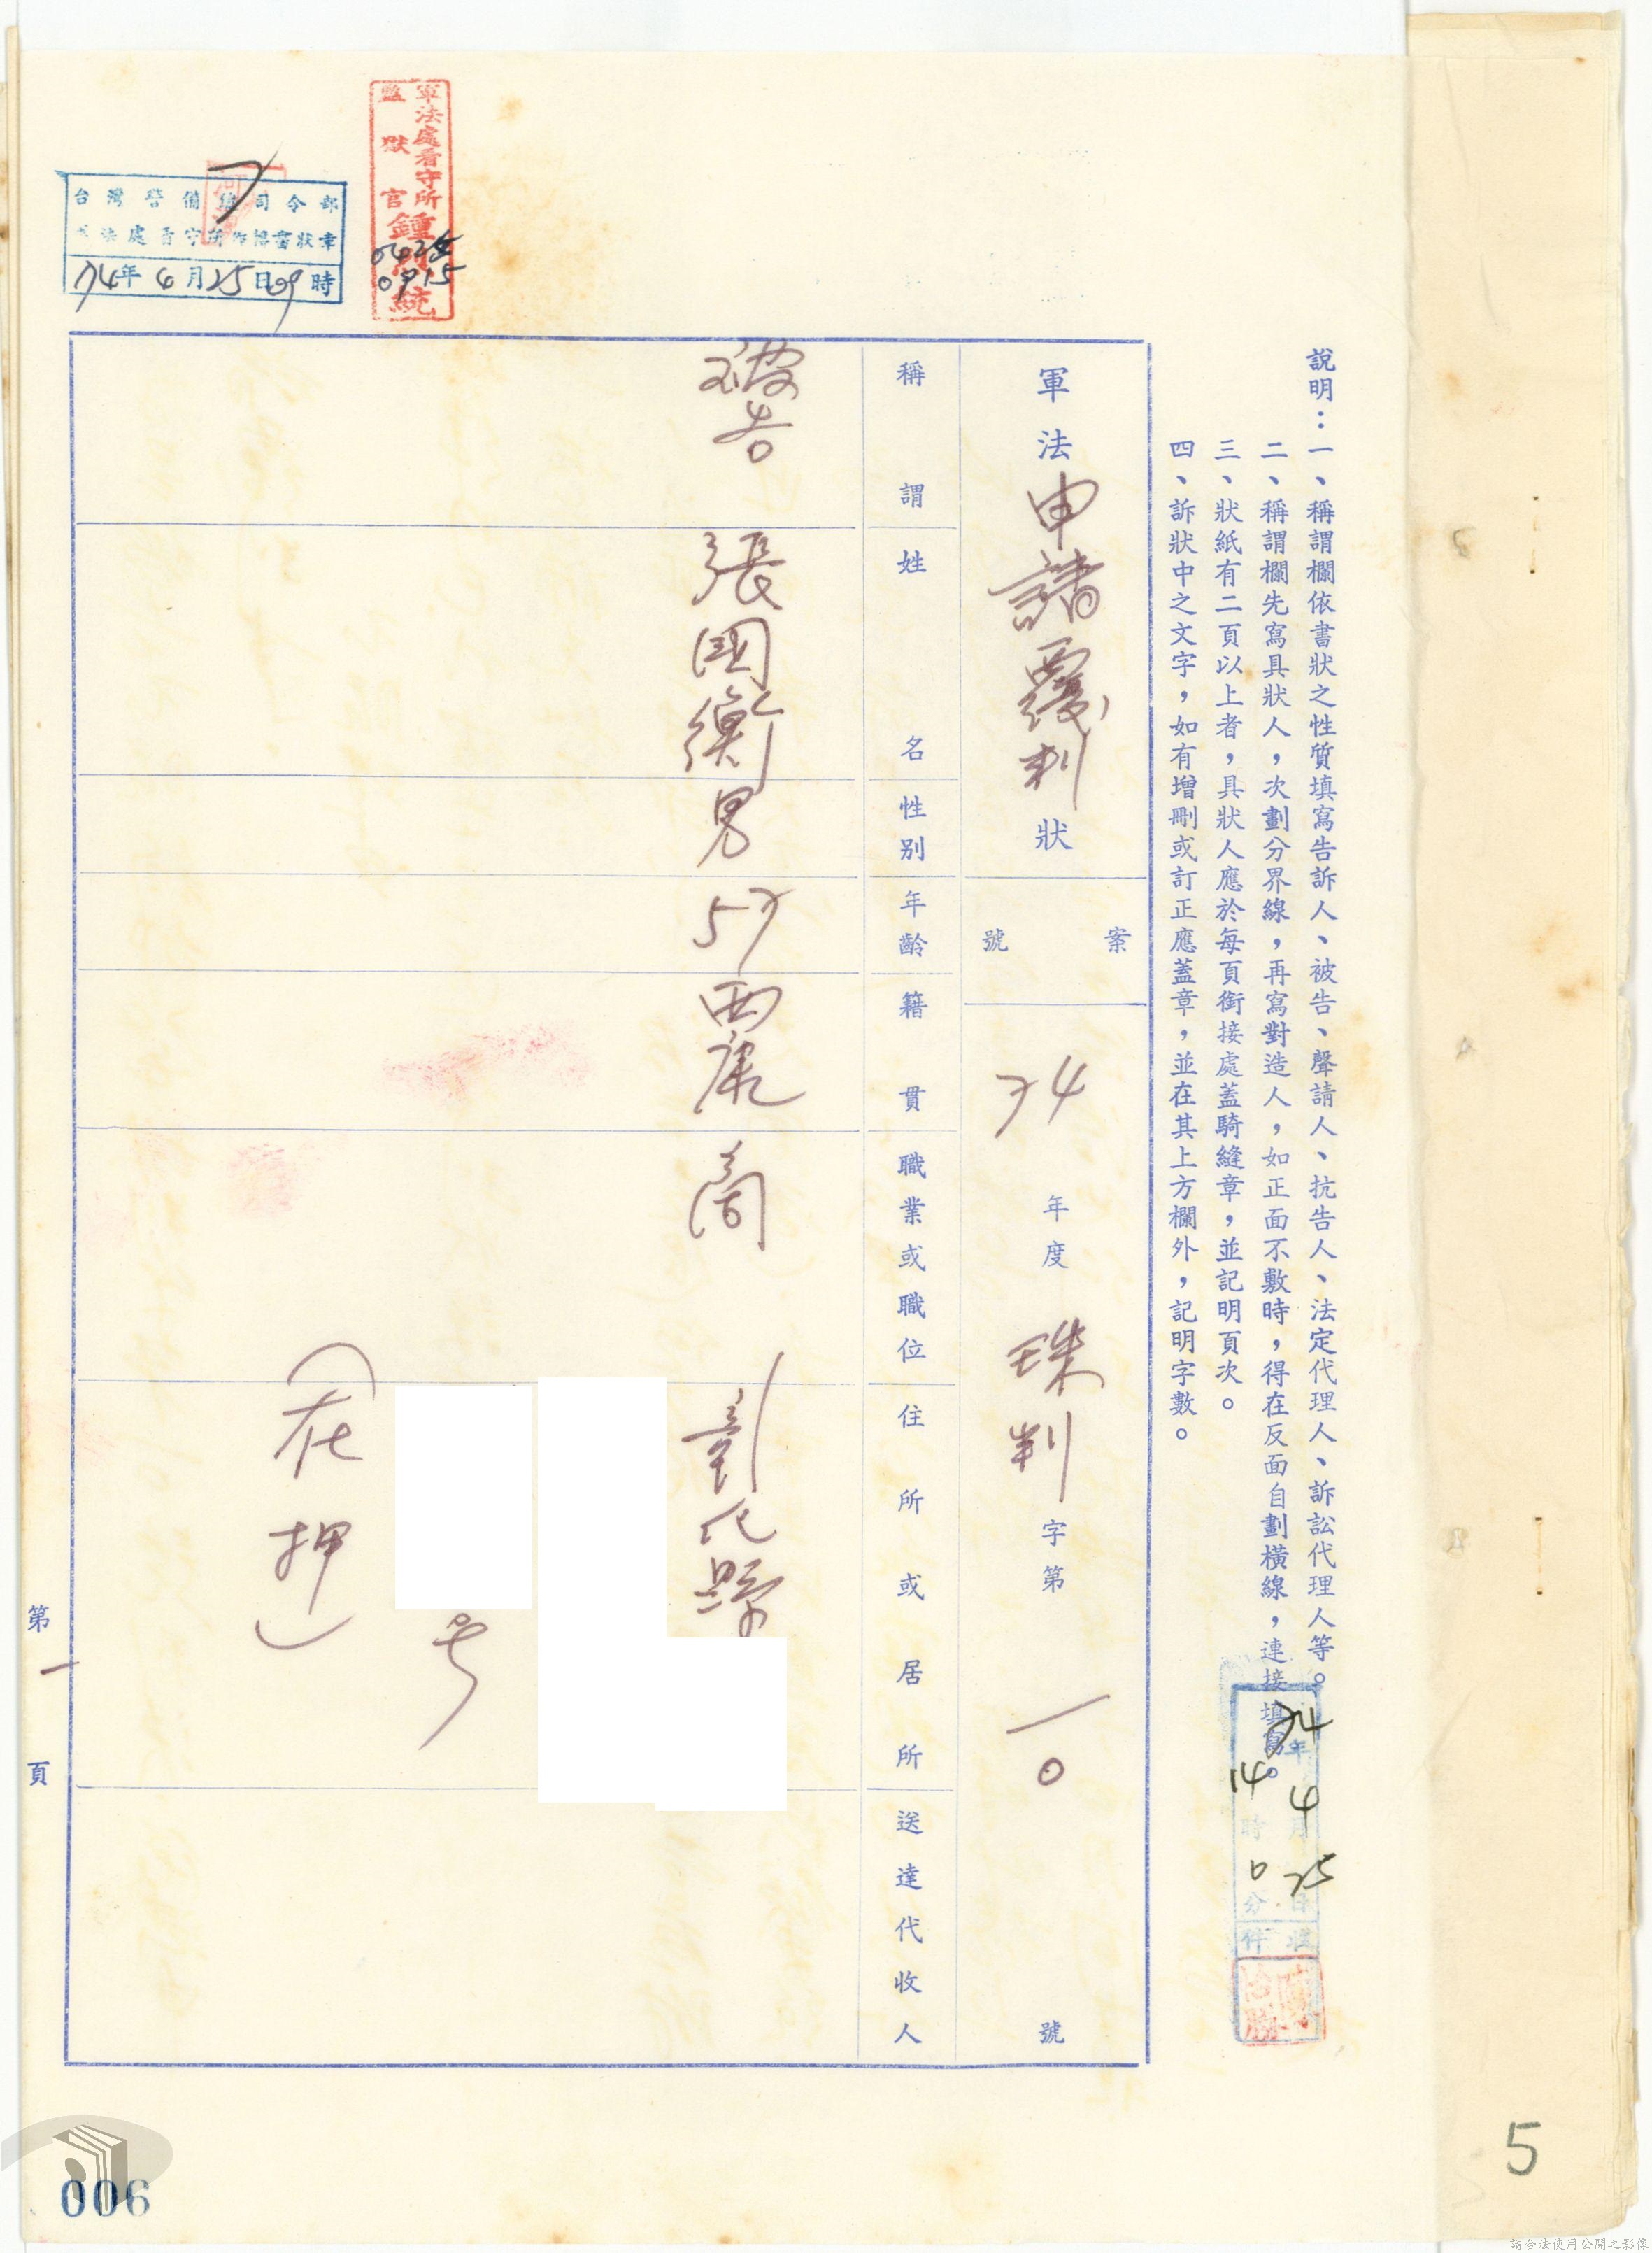 說明：一、稱謂欄依書狀之性質填寫告訴人、被告、聲請人、抗告人、法定代理人、訴訟代理人等。
二、稱謂欄先寫具狀人，次劃分界線，再寫對造人，如正面不敷時，得在反面自劃橫線，連接填寫。
三、狀紙有二頁以上者，具狀人應於每頁銜接處蓋騎縫章，並記明頁次。
四、訴狀中之文字，如有增刪或訂正應蓋章，並在其上方欄外，記明字數。
74年4月25日
14時0分
收件
軍法申請覆判狀
案號
74年度珠判字第一0號
稱謂
姓名
性別
年齡
籍貫
職業或職位
住所或居所
送達代收人
被告
張國衡
男
57
西康
商
彰化縣
号
（在押）
軍法處看守所
監獄官
鍾統
0425
0915
台灣警備總司令部
法處看守所書狀章
74年4月25日09時
第一頁
006
5
請合法使用公開之影像